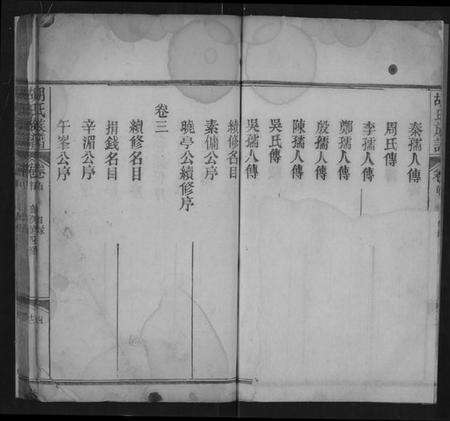 秦孺人傳
周氏傳
李孺人傳
鄭孺人傳
殷孺人傳
陳孺人傳
吳氏傳
吳孺人傳
續修名目
素傭公序
曉亭公續修序
卷三
續修名目
捐錢名目
辛湄公序
午峯公序